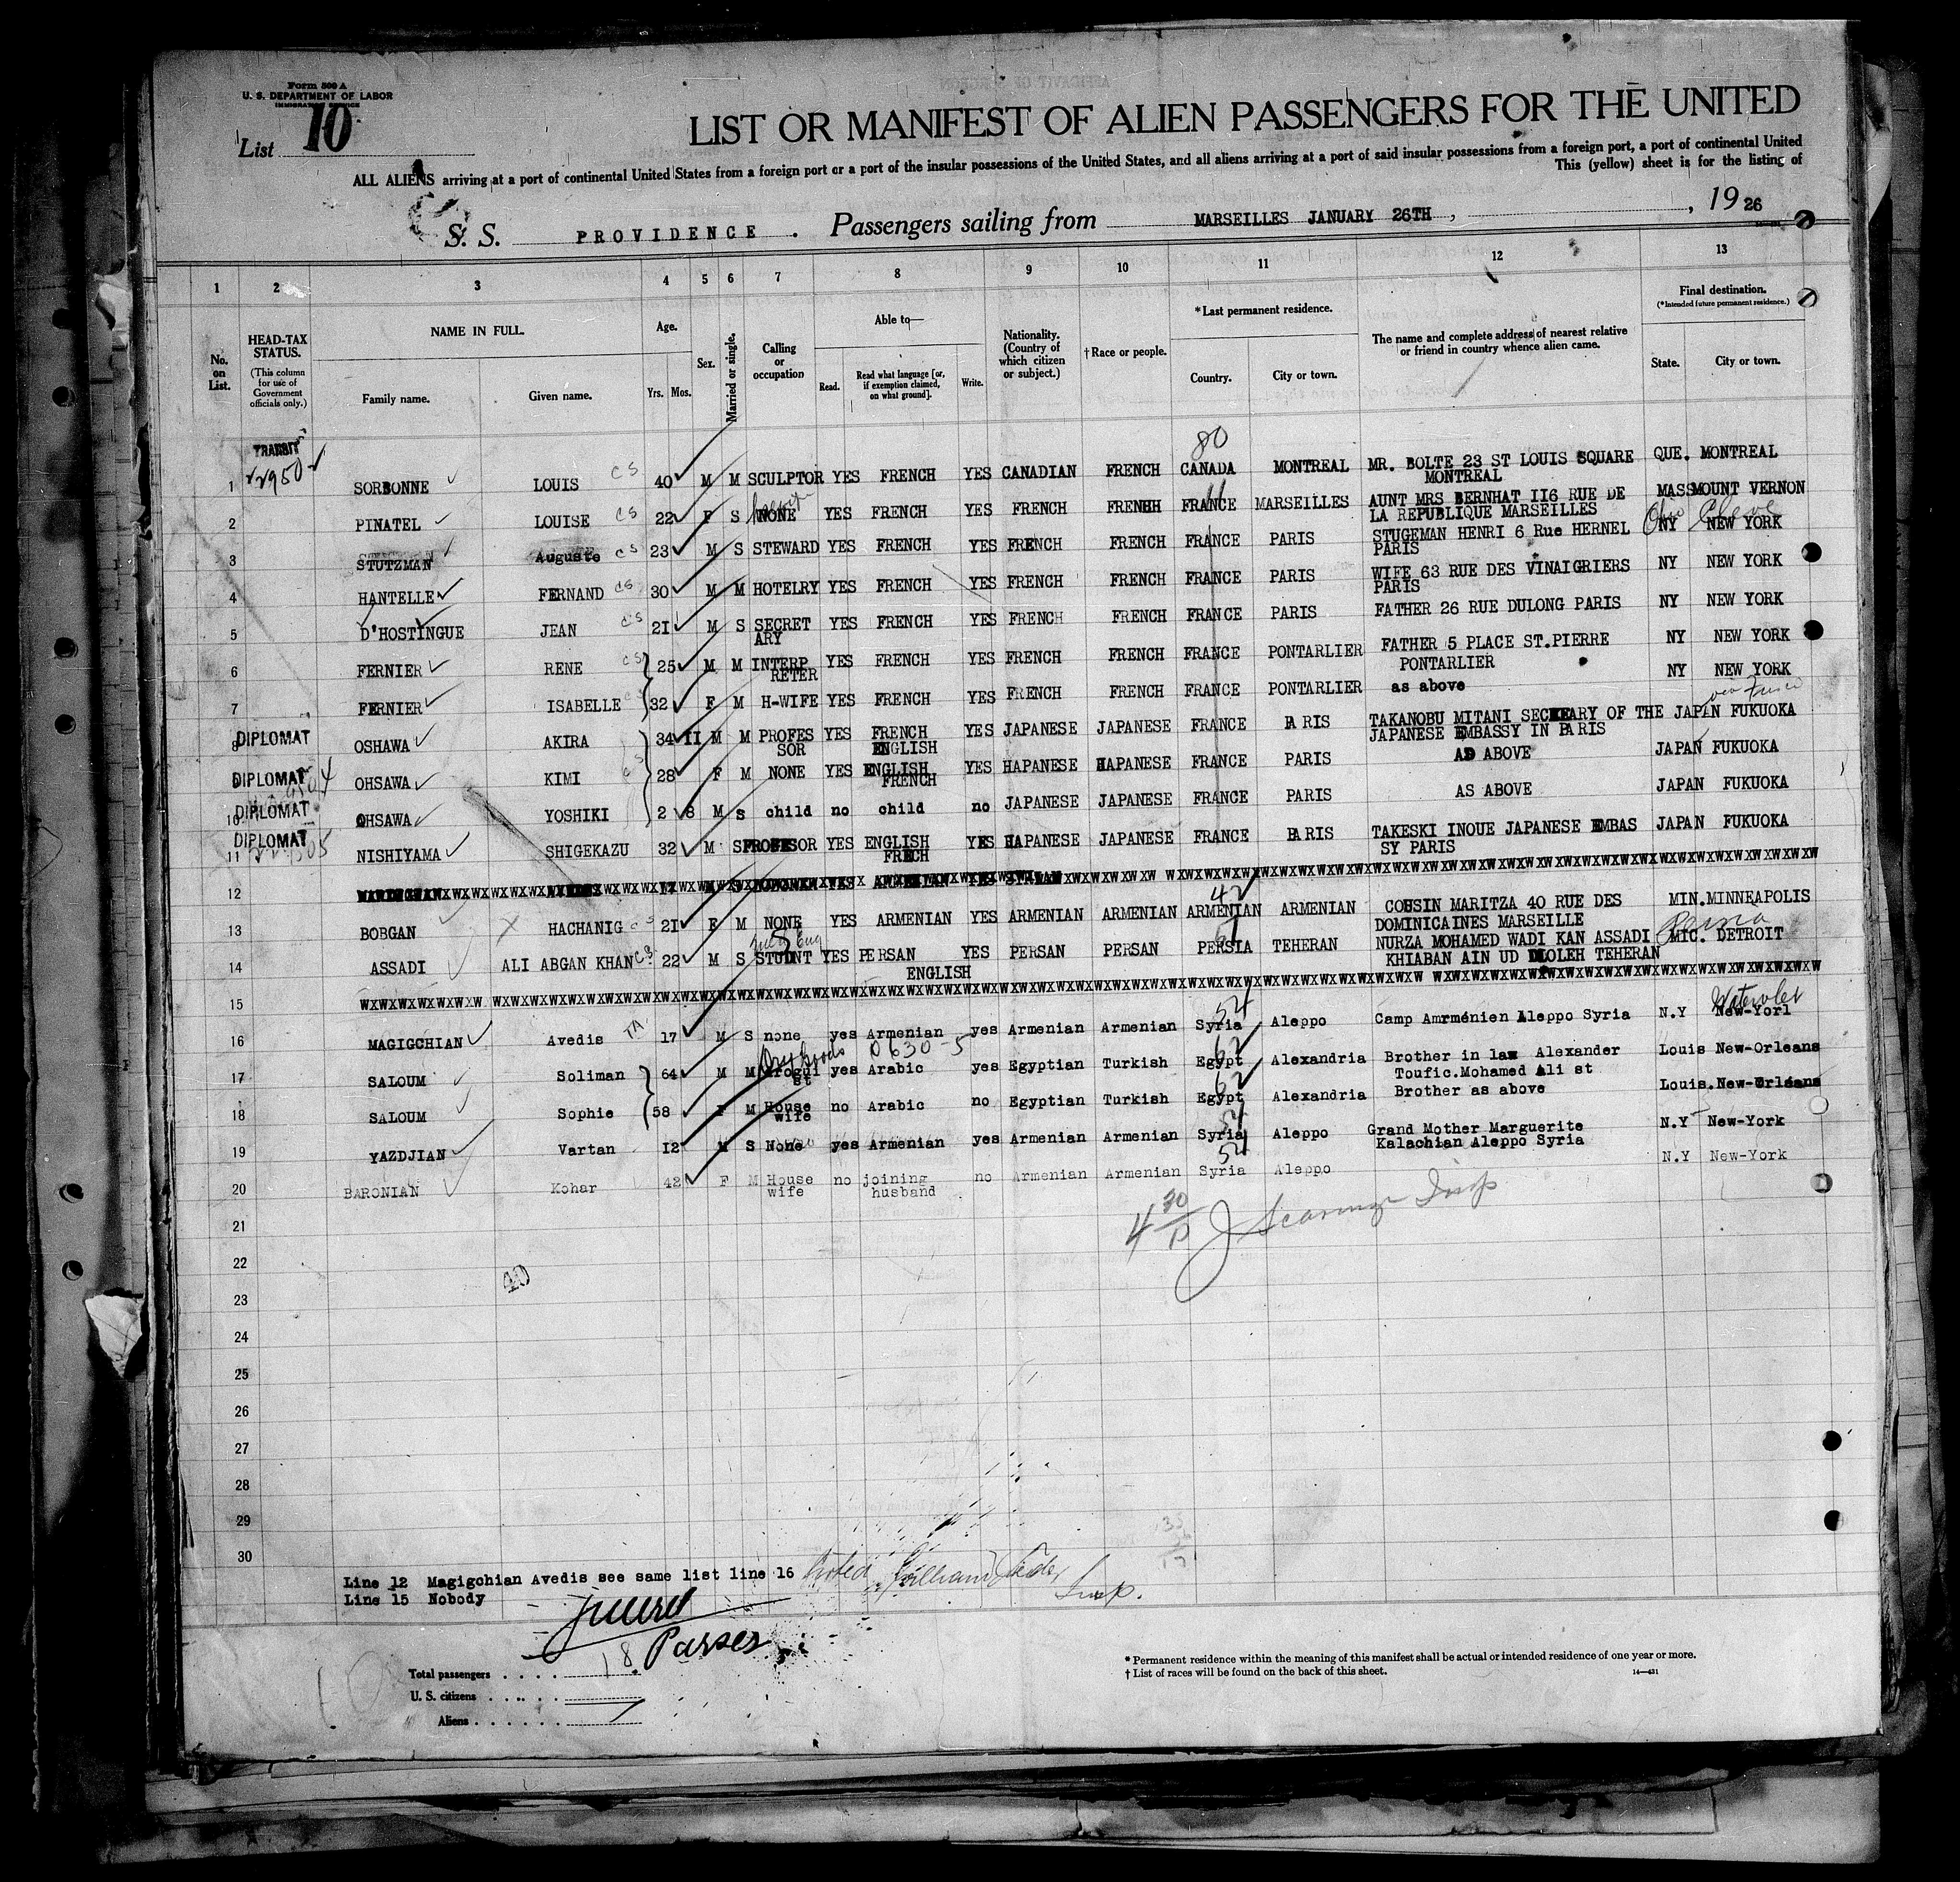 Form 500 A
U. S. DEPARTMENT OF LABOR
IMMIGRATION SERVICE
List 10
LIST OR MANIFEST OF ALIEN PASSENGERS FOR THE UNITED
ALL ALIENS arriving at a port of continental United States from a foreign port or a port of the insular possessions of the United States, and all aliens arriving at a port of said insular possessions from a foreign port, a port of continental United
This (yellow) sheet is for the listing of
S. S. PROVIDENCE . Passengers sailing from MARSEILLES JANUARY 26TH , , 19 26
1 2 3 4 5 6 7 8 9 10 11 12 13
No. on List.
HEAD-TAX STATUS.
(This column for use of Government officials only.)
NAME IN FULL.
Family name. Given name.
Age.
Yrs. Mos.
Sex.
Married or single.
Calling or occupation
Able to—
Read. Read what language [or, if exemption claimed, on what ground]. Write.
Nationality. (Country of which citizen or subject.)
†Race or people.
*Last permanent residence.
Country. City or town.
The name and complete address of nearest relative or friend in country whence alien came.
Final destination.
(*Intended future permanent residence.)
State. City or town.
TRANSIT
80
1 SORBONNE LOUIS CS 40 M M SCULPTOR YES FRENCH YES CANADIAN FRENCH CANADA MONTREAL MR. BOLTE 23 ST LOUIS SQUARE QUE. MONTREAL
MONTREAL
2 PINATEL LOUISE CS 22 F S NONE YES FRENCH YES FRENCH FRENHH FRANCE MARSEILLES AUNT MRS BERNHAT II6 RUE DE MASS MOUNT VERNON
LA REPUBLIQUE MARSEILLES
Ohio Cleve
3 STUTZMAN Auguste CS 23 M S STEWARD YES FRENCH YES FRENCH FRENCH FRANCE PARIS STUGEMAN HENRI 6 Rue HERNEL NY NEW YORK
PARIS
4 HANTELLE FERNAND CS 30 M M HOTELRY YES FRENCH YES FRENCH FRENCH FRANCE PARIS WIFE 63 RUE DES VINAIGRIERS NY NEW YORK
PARIS
5 D'HOSTINGUE JEAN CS 2I M S SECRET YES FRENCH YES FRENCH FRENCH FRANCE PARIS FATHER 26 RUE DULONG PARIS NY NEW YORK
ARY
6 FERNIER RENE CS 25 M M INTERP YES FRENCH YES FRENCH FRENCH FRANCE PONTARLIER FATHER 5 PLACE ST.PIERRE NY NEW YORK
RETER PONTARLIER
7 FERNIER ISABELLE CS 32 F M H-WIFE YES FRENCH YES FRENCH FRENCH FRANCE PONTARLIER as above NY NEW YORK
8 DIPLOMAT OSHAWA AKIRA 34 II M M PROFES YES FRENCH YES JAPANESE JAPANESE FRANCE PARIS TAKANOBU MITANI SECREARY OF THE JAPAN FUKUOKA
SOR ENGLISH JAPANESE EMBASSY IN PARIS
9 DIPLOMAT OHSAWA KIMI CS 28 F M NONE YES ENGLISH YES HAPANESE HAPANESE FRANCE PARIS AS ABOVE JAPAN FUKUOKA
FRENCH
10 DIPLOMAT OHSAWA YOSHIKI 2 8 M S child no child no JAPANESE JAPANESE FRANCE PARIS AS ABOVE JAPAN FUKUOKA
11 DIPLOMAT NISHIYAMA SHIGEKAZU 32 M S PROFESSOR YES ENGLISH YES HAPANESE JAPANESE FRANCE PARIS TAKESKI INOUE JAPANESE EMBAS JAPAN FUKUOKA
FRECH SY PARIS
12
42
13 BOBGAN HACHANIG CS 2I F M NONE YES ARMENIAN YES ARMENIAN ARMENIAN ARMENIAN ARMENIAN COUSIN MARITZA 40 RUE DES MIN. MINNEAPOLIS
DOMINICAINES MARSEILLE
Persia
14 ASSADI ALI ABGAN KHAN CS 22 M S STUDNT YES PERSAN YES PERSAN PERSAN PERSIA TEHERAN NURZA MOHAMED WADI KAN ASSADI MIC. DETROIT
ENGLISH KHIABAN AIN UD DOLEH TEHERAN
15
54 Watervlet
16 MAGIGCHIAN Avedis 17 M S none yes Armenian yes Armenian Armenian Syria Aleppo Camp Amrménien Aleppo Syria N.Y New-Yorl
Dry Goods 0630-5 62
17 SALOUM Soliman 64 M M Drogui yes Arabic yes Egyptian Turkish Egypt Alexandria Brother in law Alexander Louis New-Orleans
st Toufic.Mohamed Ali st
62
18 SALOUM Sophie 58 F M House no Arabic no Egyptian Turkish Egypt Alexandria Brother as above Louis. New-Orleans
wife
54
19 YAZDJIAN Vartan I2 M S None yes Armenian yes Armenian Armenian Syria Aleppo Grand Mother Marguerite N.Y New-York
Kalachian Aleppo Syria
54
20 BARONIAN Kohar 42 F M House no joining no Armenian Armenian Syria Aleppo N.Y New-York
wife husband
21
22
23
40
24
25
26
27
28
29
30
Line 12 Magigchian Avedis see same list line 16
Line 15 Nobody
Insp.
18 Passes
Total passengers
U. S. citizens
Aliens
* Permanent residence within the meaning of this manifest shall be actual or intended residence of one year or more.
† List of races will be found on the back of this sheet. 14—431